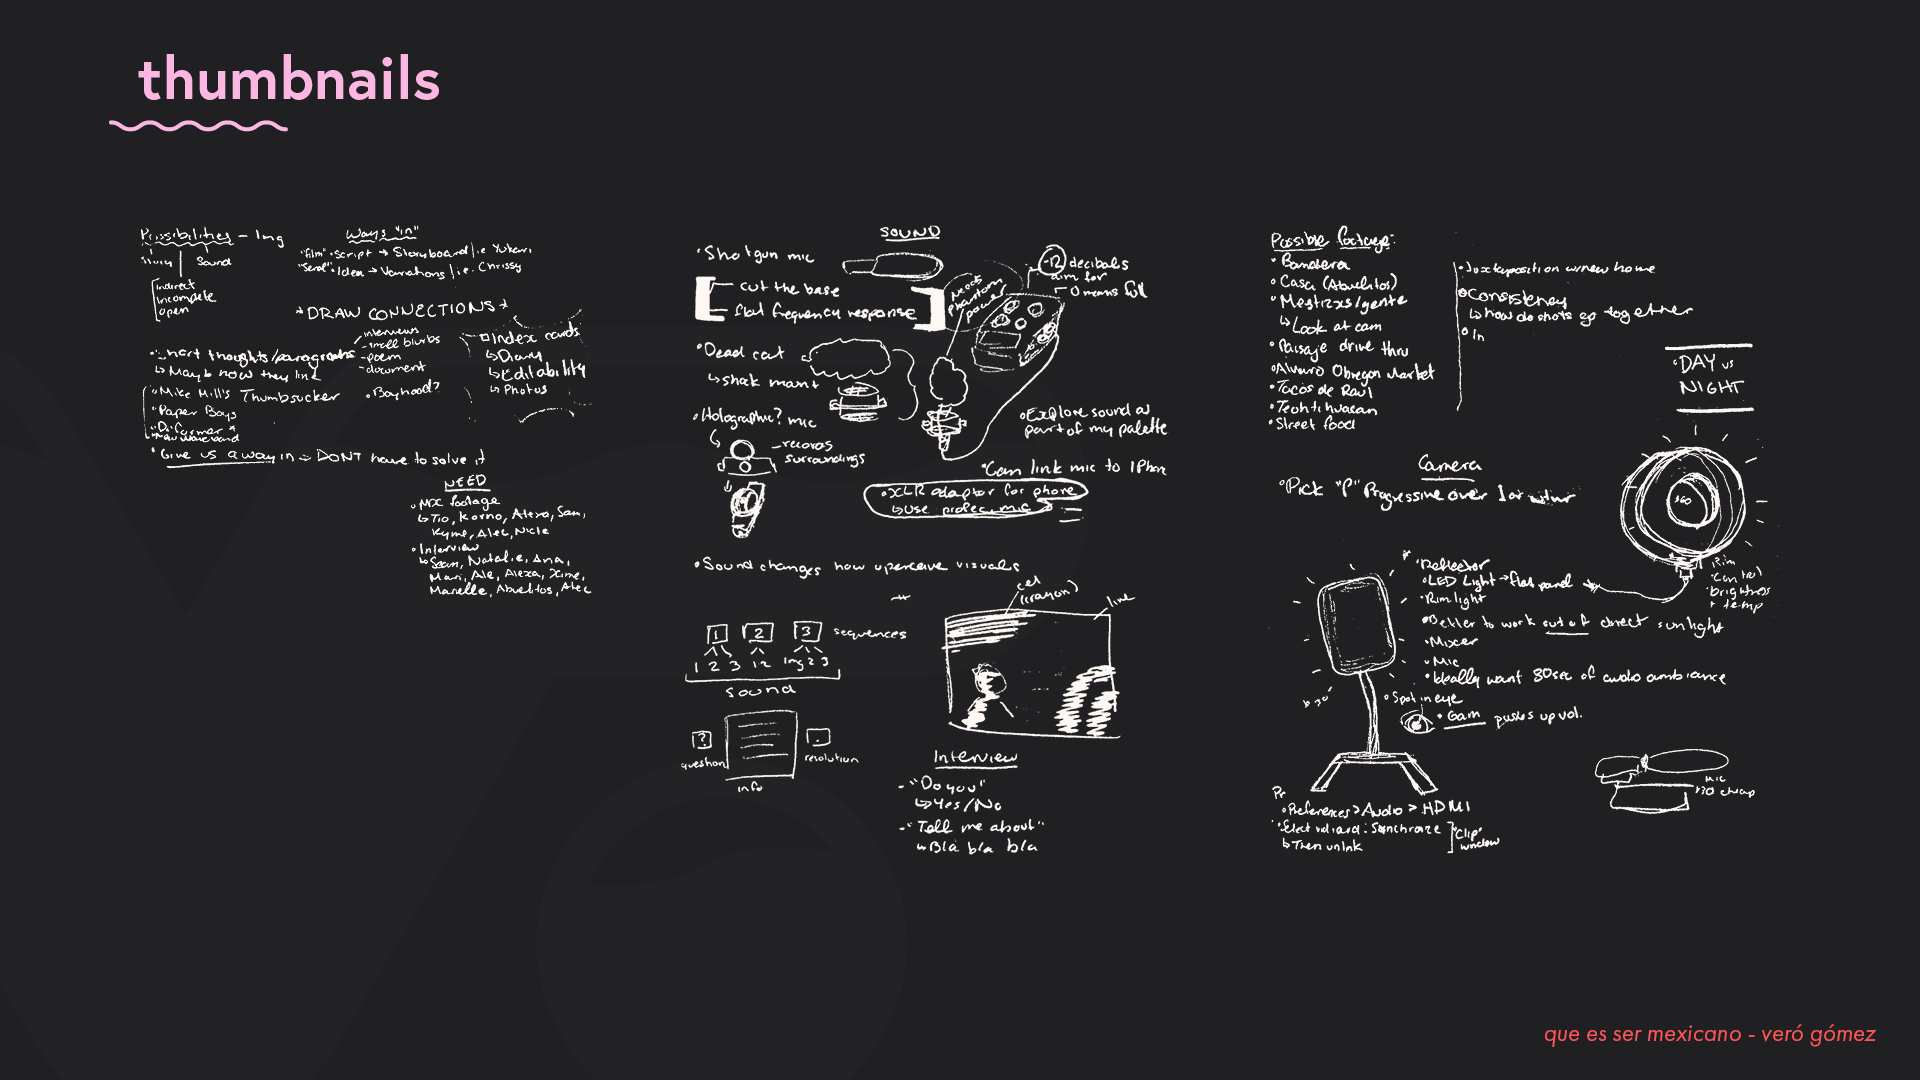 thumbnails
Possibilities - Img
Story | Sound
indirect
incomplete
open
Ways "in"
"film" • script → Storyboard / i.e. Yukari
• Idea → Variations / i.e. Chrissy
* DRAW CONNECTIONS *
• Short thoughts/paragraphs
↳ Mayb how they link
- interviews
- small blurbs
- poem
- document
Index cards
↳ Diary
↳ Editability
↳ Photos
• Mike Mill's Thumbsucker
• Boyhood?
• Paper Boys
• Give us a way in = DONT have to solve it
NEED
• MX footage
↳ Tio, Korno, Alexa, Sam,
Kyme, Alec, Nicle
• Interview
↳ Sean, Natalie, Ana,
Mari, Ale, Alexa, Xime,
Marielle, Abuelitos, Alec
SOUND
• Shotgun mic
cut the base
flat frequency response
Needs phantom power
-12 decibals
aim for
0 means full
• Dead cat
↳ shok mount
• Holographic? mic
- records
surroundings
• Explore sound as
part of my palette
• Can link mic to iPhone
• XLR adaptor for phone
↳ use profec. mic
• Sound changes how u perceive visuals
cel
(crayon)
line
1 2 3 sequences
1 2 3 1 2 Img 2 3
sound
?
question
info
resolution
Interview
- "Do you"
↳ Yes/No
- "Tell me about"
↳ Bla bla bla
Possible footage:
• Bandera
• Casa (Abuelitos)
• Mestizxs/gente
↳ Look at cam
• Paisaje drive thru
• Alvaro Obregon Market
• Tacos de Raul
• Teohtihuacan
• Street food
• Juxtaposition w/ new home
• Consistency
↳ how do shots go together
• In
• DAY vs
NIGHT
Camera
• Pick "P" Progressive over I or
360
• Reflector
• LED Light → flat panel
• Rim light
• Better to work out of direct sunlight
• Mixer
• Mic
• Ideally want 30sec of audio ambiance
• Spot in eye
• Gain pushes up vol.
Rim
• Control
• brightness
+ temp
Mic
cheap
Pr
• Preferences > Audio > HDMI
• Select vid and : Synchronize
↳ Then unlink
"Clip"
window
que es ser mexicano - veró gómez